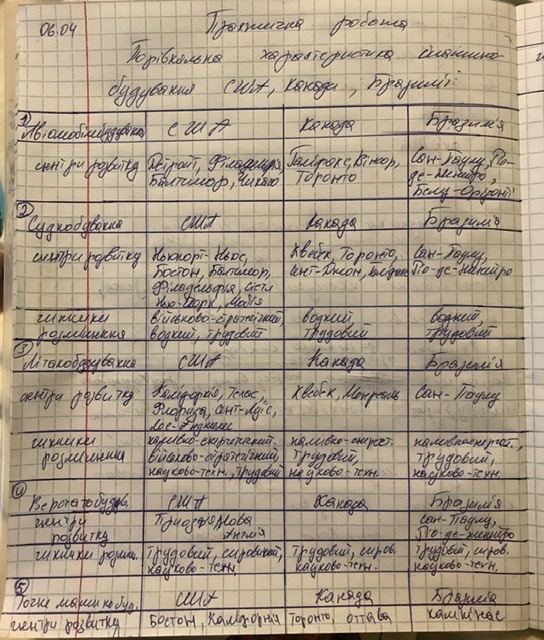 06.04 Практична робота
Порівняльна характеристика машино-
будування США, Канади, Бразилії
1) Автомобілебудування США Канада Бразилія
центри розвитку Детройт, Філадельфія, Галіфакс, Віндзор, Сан-Паулу, Ріо-
Балтимор, Чикаго Торонто де-Жанейро,
Белу-Оризонті
2) Суднобудування США Канада Бразилія
центри розвитку Ньюпорт-Ньюс, Квебек, Торонто, Сан-Паулу,
Бостон, Балтимор, Сент-Джон, Ріо-де-Жанейро
Філадельфія, Сіетл
Нью-Йорк,
чинники військово-стратегічний, водний, водний,
розміщення водний, трудовий трудовий трудовий
3) Літакобудування США Канада Бразилія
центри розвитку Каліфорнія, Техас, Квебек, Монреаль Сан-Паулу
Флорида, Сент-Луїс,
Лос-Анджелес
чинники паливно-енергетичний, паливно-енергет. паливноенергет.,
розміщення військово-стратегічний, трудовий, трудовий,
науково-техн., трудовий науково-техн. науково-техн.
4) Верстатобудув. США Канада Бразилія
центри Приозер'я, Нова Сан-Паулу,
розвитку Англія Ріо-де-Жанейро
чинники розміщ. трудовий, сировинний, трудовий, сиров. трудовий, сиров.
науково-техн. науково-техн. науково-техн.
5) Точне машинобуд. США Канада Бразилія
центри розвитку Бостон, Каліфорнія Торонто, Оттава Кампінас